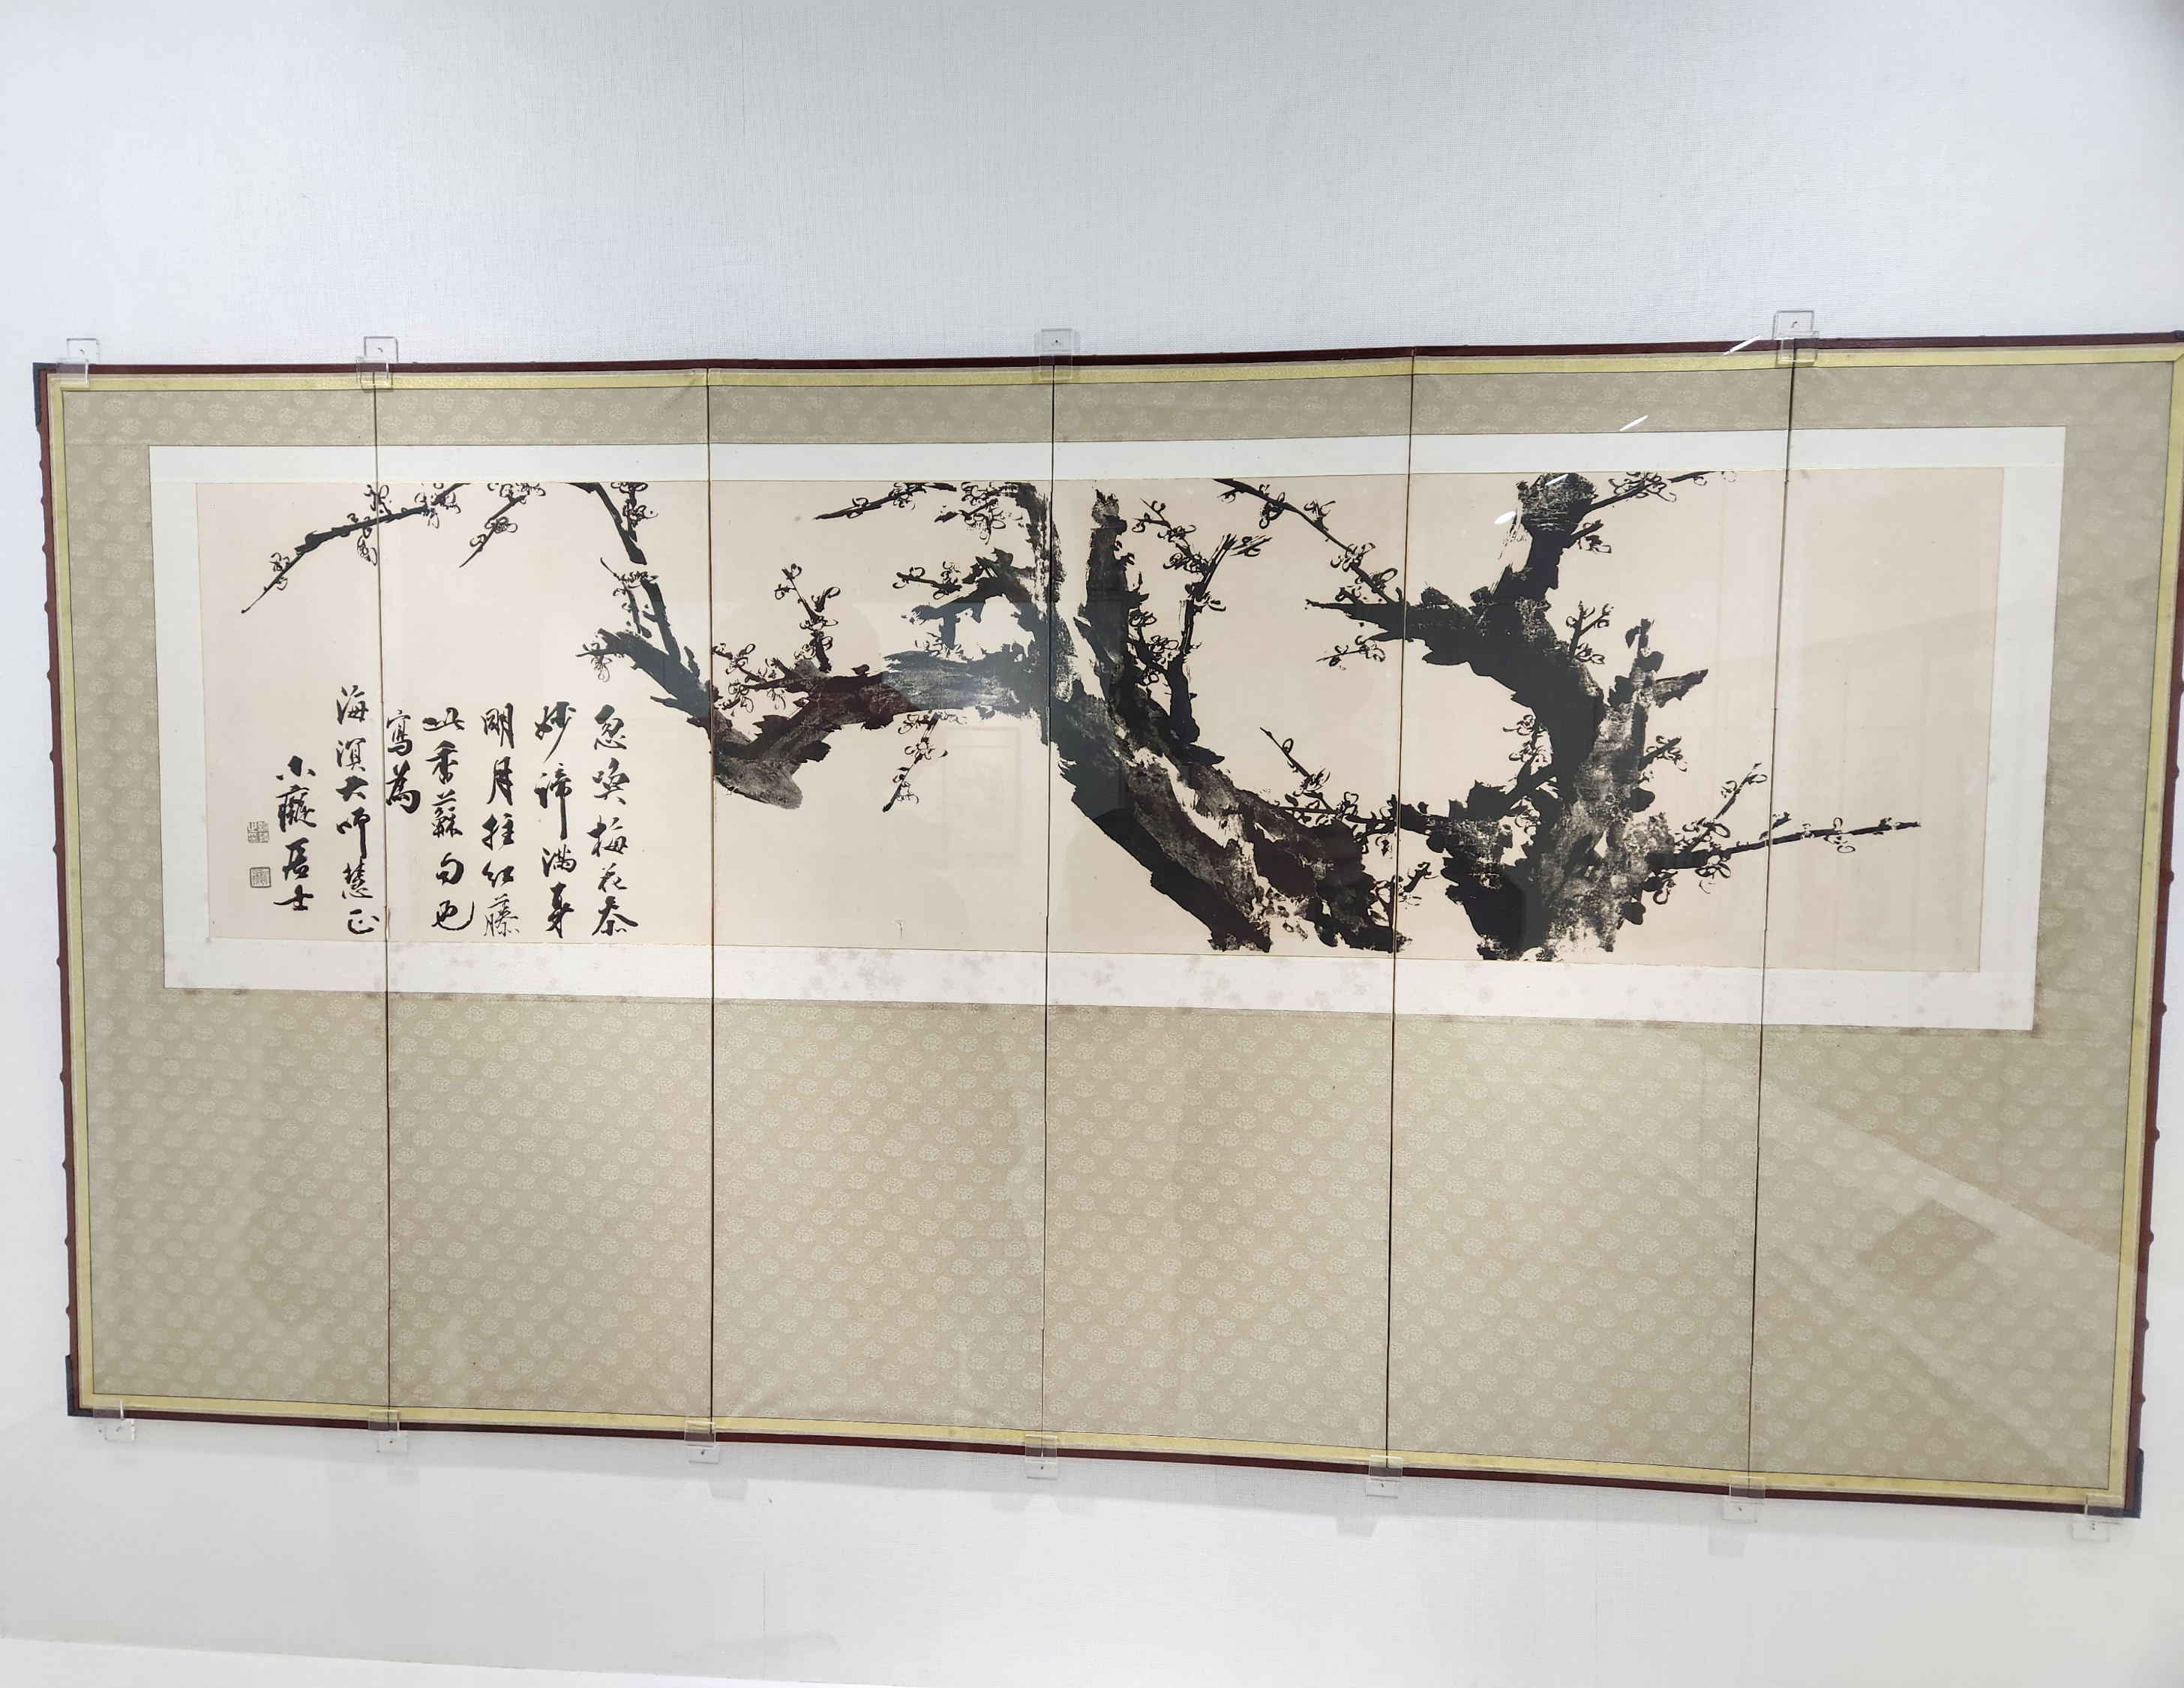 忽喚梅花叅
妙諦滿身
明月拄紅藤
此香蘇句也
寫為
海溟大師慧正
小癡居士